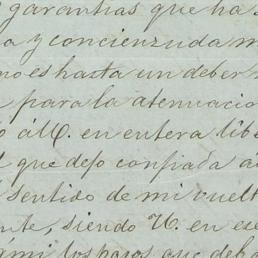 garantias que ha
a y concienzuda m
no es hasta un deber
para la atenuacio
ó á U. en entera libe
que dejo confiada a
sentido de mi vuelt
nte, siendo U. en ese
los pasos que deba